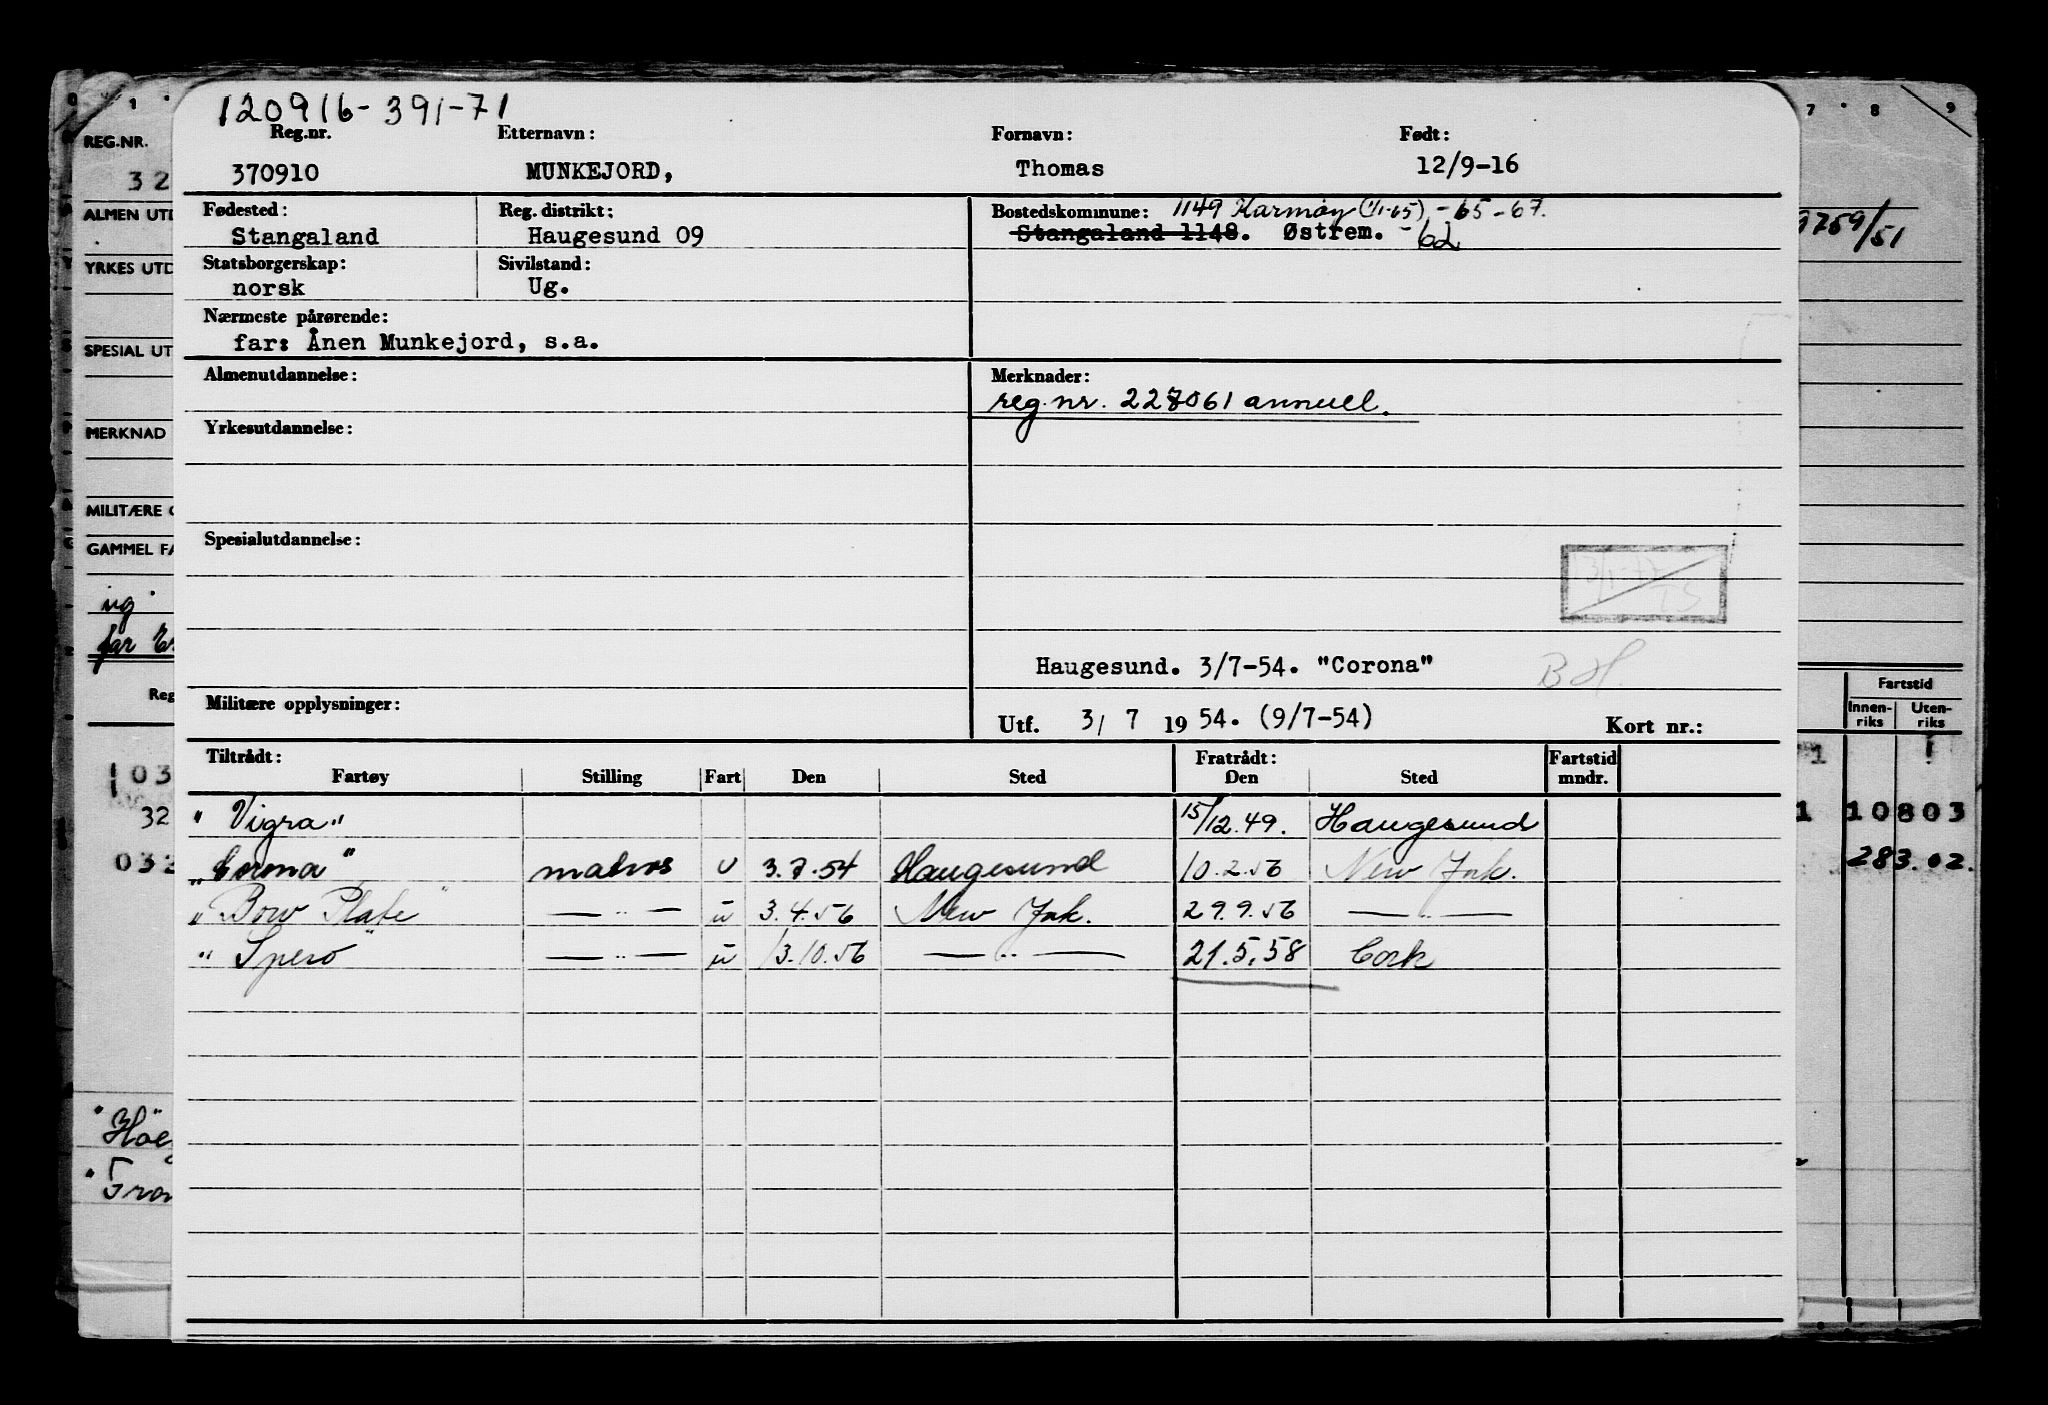 120916-391-71
Reg.nr. Etternavn: Fornavn: Født:
370910 MUNKEJORD, Thomas 12/9-16
Fødested: Reg. distrikt: Bostedskommune: 1149 Karmøy (1/1-65) -65-67.
Stangaland Haugesund 09 Stangaland 1148. Østrem. -62
Statsborgerskap: Sivilstand:
norsk Ug.
Nærmeste pårørende:
far: Ånen Munkejord, s.a.
Almenutdannelse: Merknader:
reg.nr. 227061 annuell.
Yrkesutdannelse:
Spesialutdannelse:
Haugesund. 3/7-54. "Corona" B H.
Militære opplysninger: Utf. 3/ 7 19 54. (9/7-54) Kort nr.:
Tiltrådt: Fratrådt: Fartstid
Fartøy Stilling Fart Den Sted Den Sted mndr.
"Vigra" 15/12.49. Haugesund
"Corona" matros u 3.7.54 Haugesund 10.2.56 New York.
"Bow Plate" — " — u 3.4.56 New York. 29.9.56 — " —
"Spero" — " — u 13.10.56 — " — 21.5.58 Cork
REG.NR.
32
ALMEN UTD
YRKES UTD
SPESIAL UT
MERKNAD
MILITÆRE O
GAMMEL FA
ug.
far
Reg
103
32
032
"Høe
"Fran
7 8 9
9759/51
Fartstid
Innen-riks Uten-riks
1
1 10803
283.02.